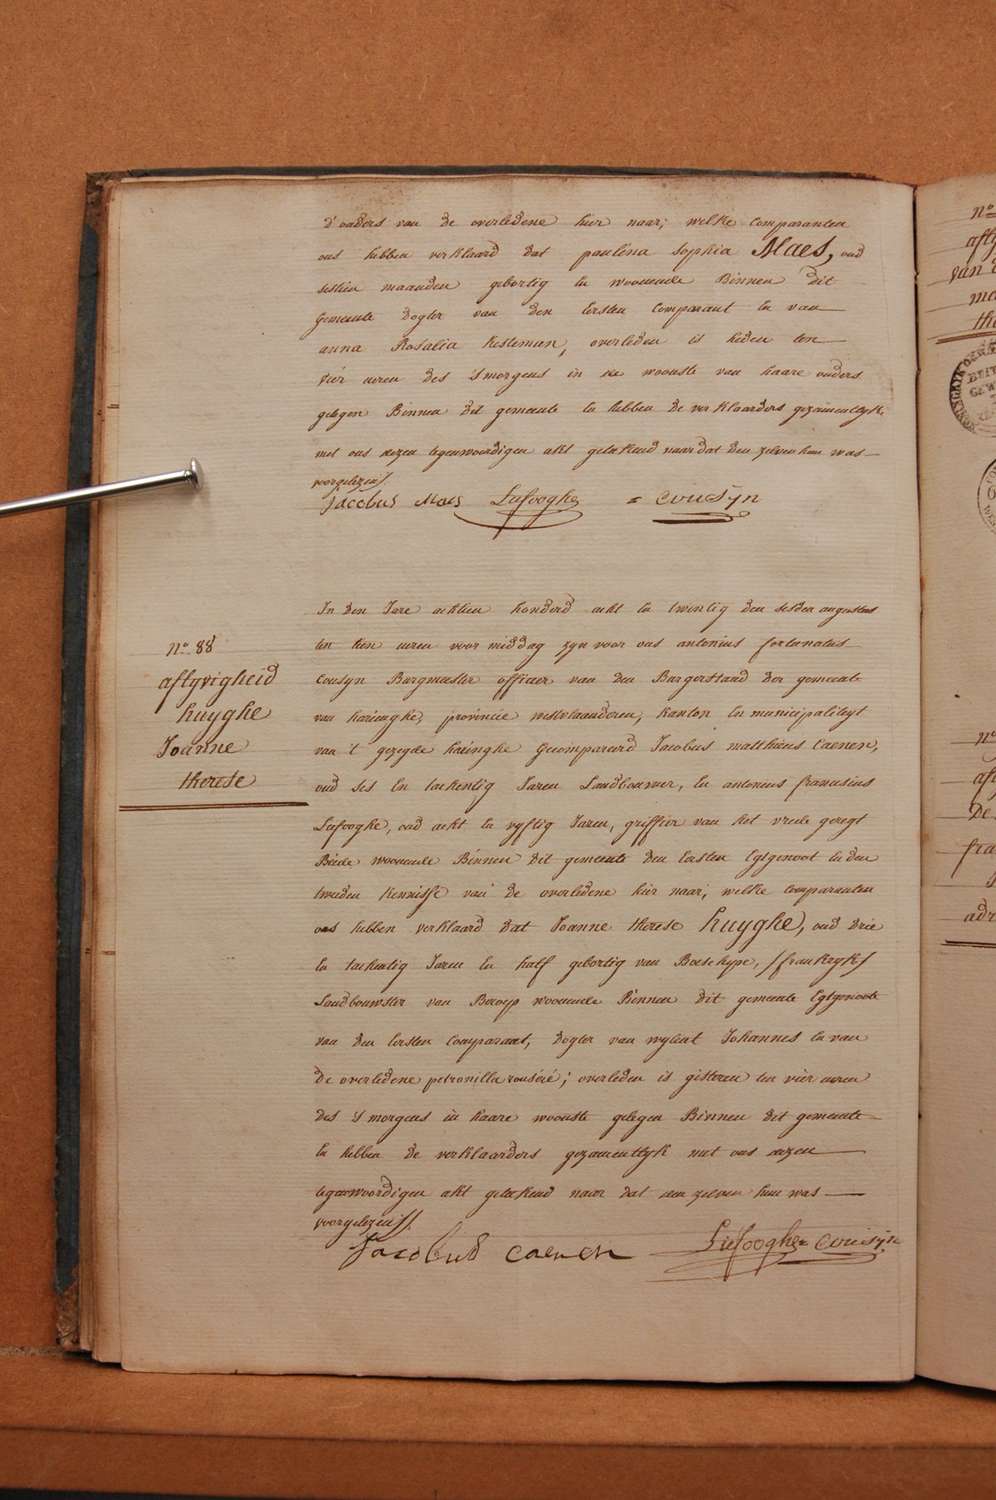 d'ouders van de overledene hier naar; welke comparanten
ons hebben verklaard dat paulina sophia Maes, oud
sesthien maanden gebortig en woonende Binnen dit
gemeente Dogter van den Eersten Comparant En van
anna Rosalia hesteman, overleden is heden ten
vier uren des 'smorgens in de wooniste van haare ouders
gelegen Binnen dit gemeente En hebben de verklaarders gezamentlyk
met ons dezen tegenwoordigen akt geteekend naar dat den zelven hun was
voorgelezen.
Jacobus Maes Lefooghe = Cousyn
N.o 88
aflyvigheid
huyghe
Joanne
therese
In den Jare achtien honderd acht en twintig den sesden augustus
ten tien uren voor middag zyn voor ons antonius fortunatus
Cousyn Burgmeester officier van den Burgerstand der gemeente
van haringhe, provincie westvlaanderen, kanton en municipaliteyt
van 't gezegde haringhe Gecompareerd Jacobus matthieus Caenen,
oud ses En tachentig Jaren Landbouwer, En antonius franciscus
Lefooghe, oud acht En vyftig Jaren, griffier van het vrede geregt
Beide woonende Binnen dit gemeente den Eersten Egtgenoot En den
tweeden kennisse van de overledene hier naar; welke comparanten
ons hebben verklaard dat Joanne therese huyghe, oud drie
En tachentig Jaren En half gebortig van Boeschepe, /frankryk/
Landbouwster van Beroep woonende Binnen dit gemeente Egtgenoote
van den Eersten Comparant; Dogter van wylent Johannes En van
De overledene petronilla rouséré; overleden is gisteren ten vier uren
des 'smorgens in haare wooniste gelegen Binnen dit gemeente
En hebben de verklaarders gezamentlyk met ons dezen
tegenwoordigen akt geteekend naar dat den zelven hun was
voorgelezen.
Jacobus Caenen Lefooghe Cousyn
N.o
van
the
N.o
De
fra
adr